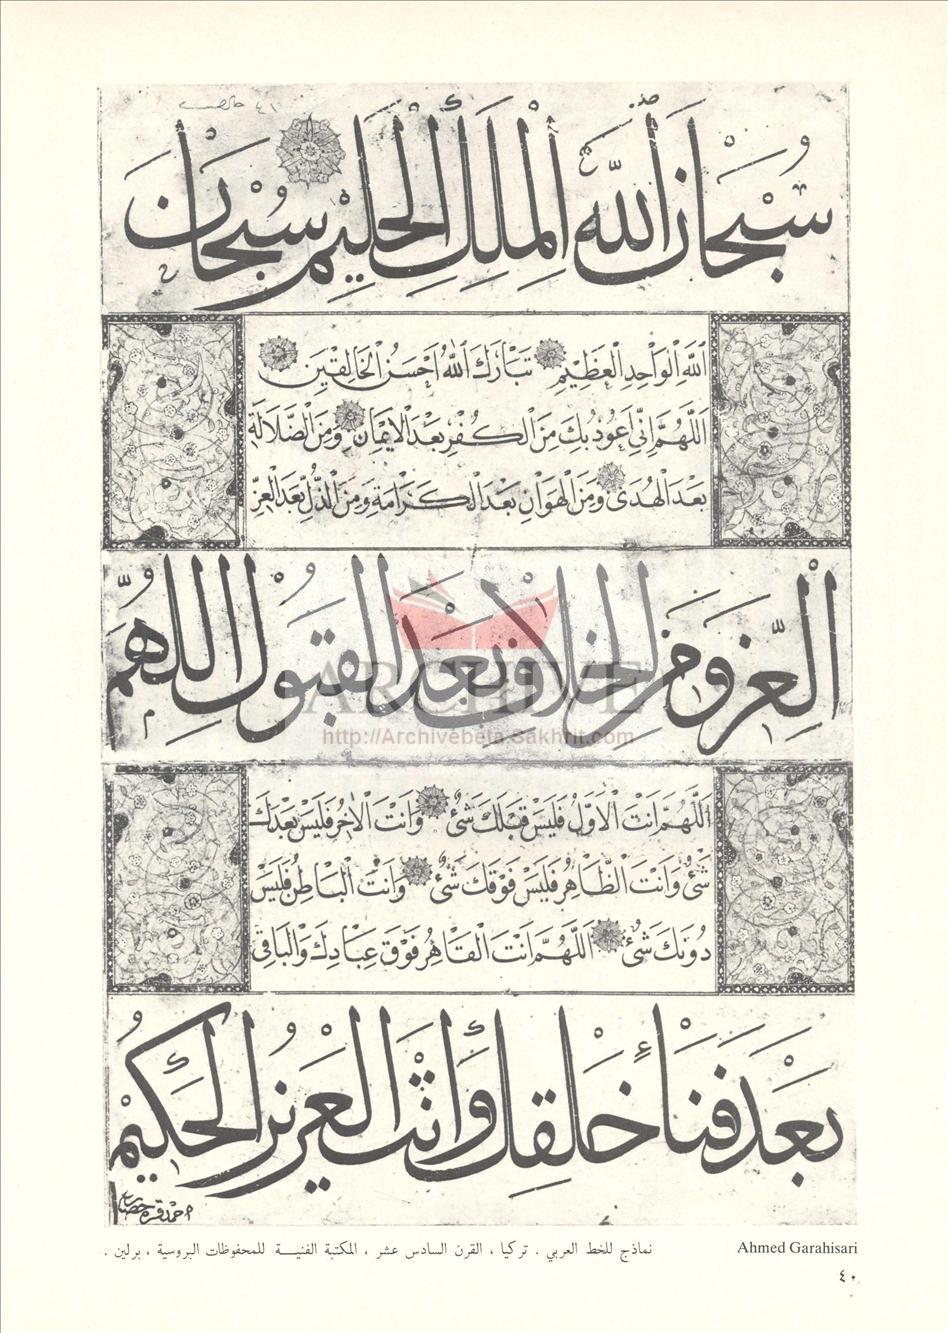 سُبْحَانَ اللّٰهِ الْمَلِكِ الْحَلِيْمِ سُبْحَانَ
اَللّٰهِ الْوَاحِدِ الْعَظِيْمِ تَبَارَكَ اللّٰهُ اَحْسَنُ الْخَالِقِيْنَ
اَللّٰهُمَّ اِنِّي اَعُوذُ بِكَ مِنَ الْكُفْرِ بَعْدَ الْاِيْمَانِ وَمِنَ الضَّلَالَةِ
بَعْدَ الْهُدَى وَمِنَ الْهَوَانِ بَعْدَ الْكَرَامَةِ وَمِنَ الذُّلِّ بَعْدَ الْعِزِّ
الْعِزِّ وَمِنَ الْخِلَافِ بَعْدَ الْقَبُولِ اَللّٰهُمَّ
ARCHIVE
http://Archivebeta.Sakhrit.com
اَللّٰهُمَّ اَنْتَ الْاَوَّلُ فَلَيْسَ قَبْلَكَ شَيْءٌ وَاَنْتَ الْاٰخِرُ فَلَيْسَ بَعْدَكَ
شَيْءٌ وَاَنْتَ الظَّاهِرُ فَلَيْسَ فَوْقَكَ شَيْءٌ وَاَنْتَ الْبَاطِنُ فَلَيْسَ
دُونَكَ شَيْءٌ اَللّٰهُمَّ اَنْتَ الْقَاهِرُ فَوْقَ عِبَادِكَ وَالْبَاقِي
بَعْدَ فَنَاءِ خَلْقِكَ وَاَنْتَ الْعَزِيْزُ الْحَكِيْمُ
احمد قره حصاري
Ahmed Garahisari
نماذج للخط العربي . تركيا ، القرن السادس عشر ، المكتبة الفنيـــة للمحفوظات البروسية ، برلين .
٤٠